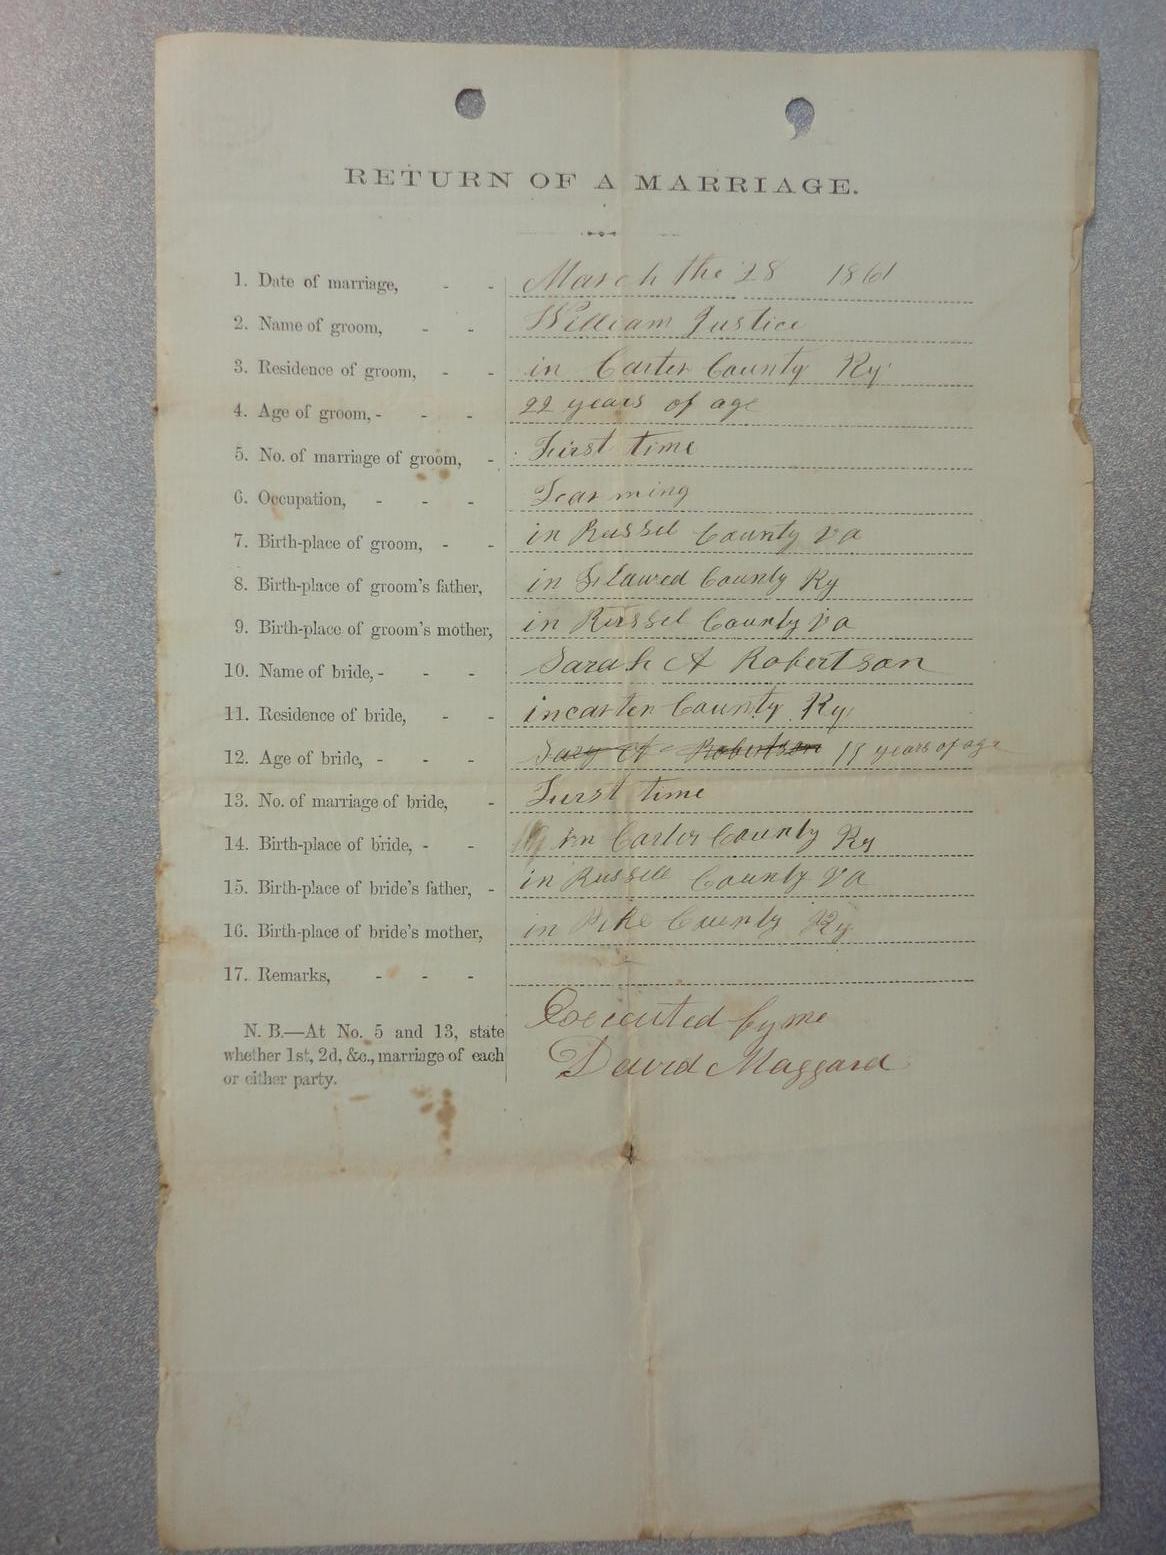 RETURN OF A MARRIAGE.
1. Date of marriage, - - March the 28 1861
2. Name of groom, - - William Justice
3. Residence of groom, - - in Carter County Ky
4. Age of groom, - - - 22 years of age
5. No. of marriage of groom, - First time
6. Occupation, - - - Fearming
7. Birth-place of groom, - - in Russel County va
8. Birth-place of groom's father, in County Ky
9. Birth-place of groom's mother, in Russel County va
10. Name of bride, - - - Sarah A Robertson
11. Residence of bride, - - incarter County Ky
12. Age of bride, - - - Robertson years of age
13. No. of marriage of bride, - Furst time
14. Birth-place of bride, - - in Carter County Ky
15. Birth-place of bride's father, - in Russell County va
16. Birth-place of bride's mother, in Pike County Ky
17. Remarks, - - -
N. B.—At No. 5 and 13, state
whether 1st, 2d, &c., marriage of each
or either party.
Executed by me
David Maggard